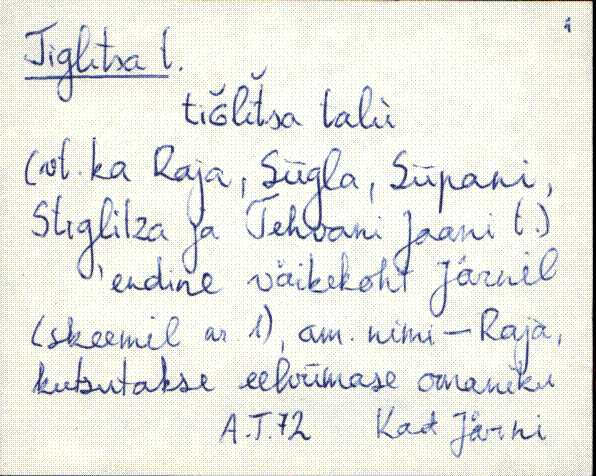 4
Tiglitsa t.
tiǦlĭtsa talù
(vt. ka Raja, Sügla, Süpani,
Stiglitza ja Tehvani Jaani t.)
'endine väikekoht Järnil
(skeemil nr. 1), am. nimi – Raja,
kutsutakse eelviimase omaniku
A.T.72 Kad Järni